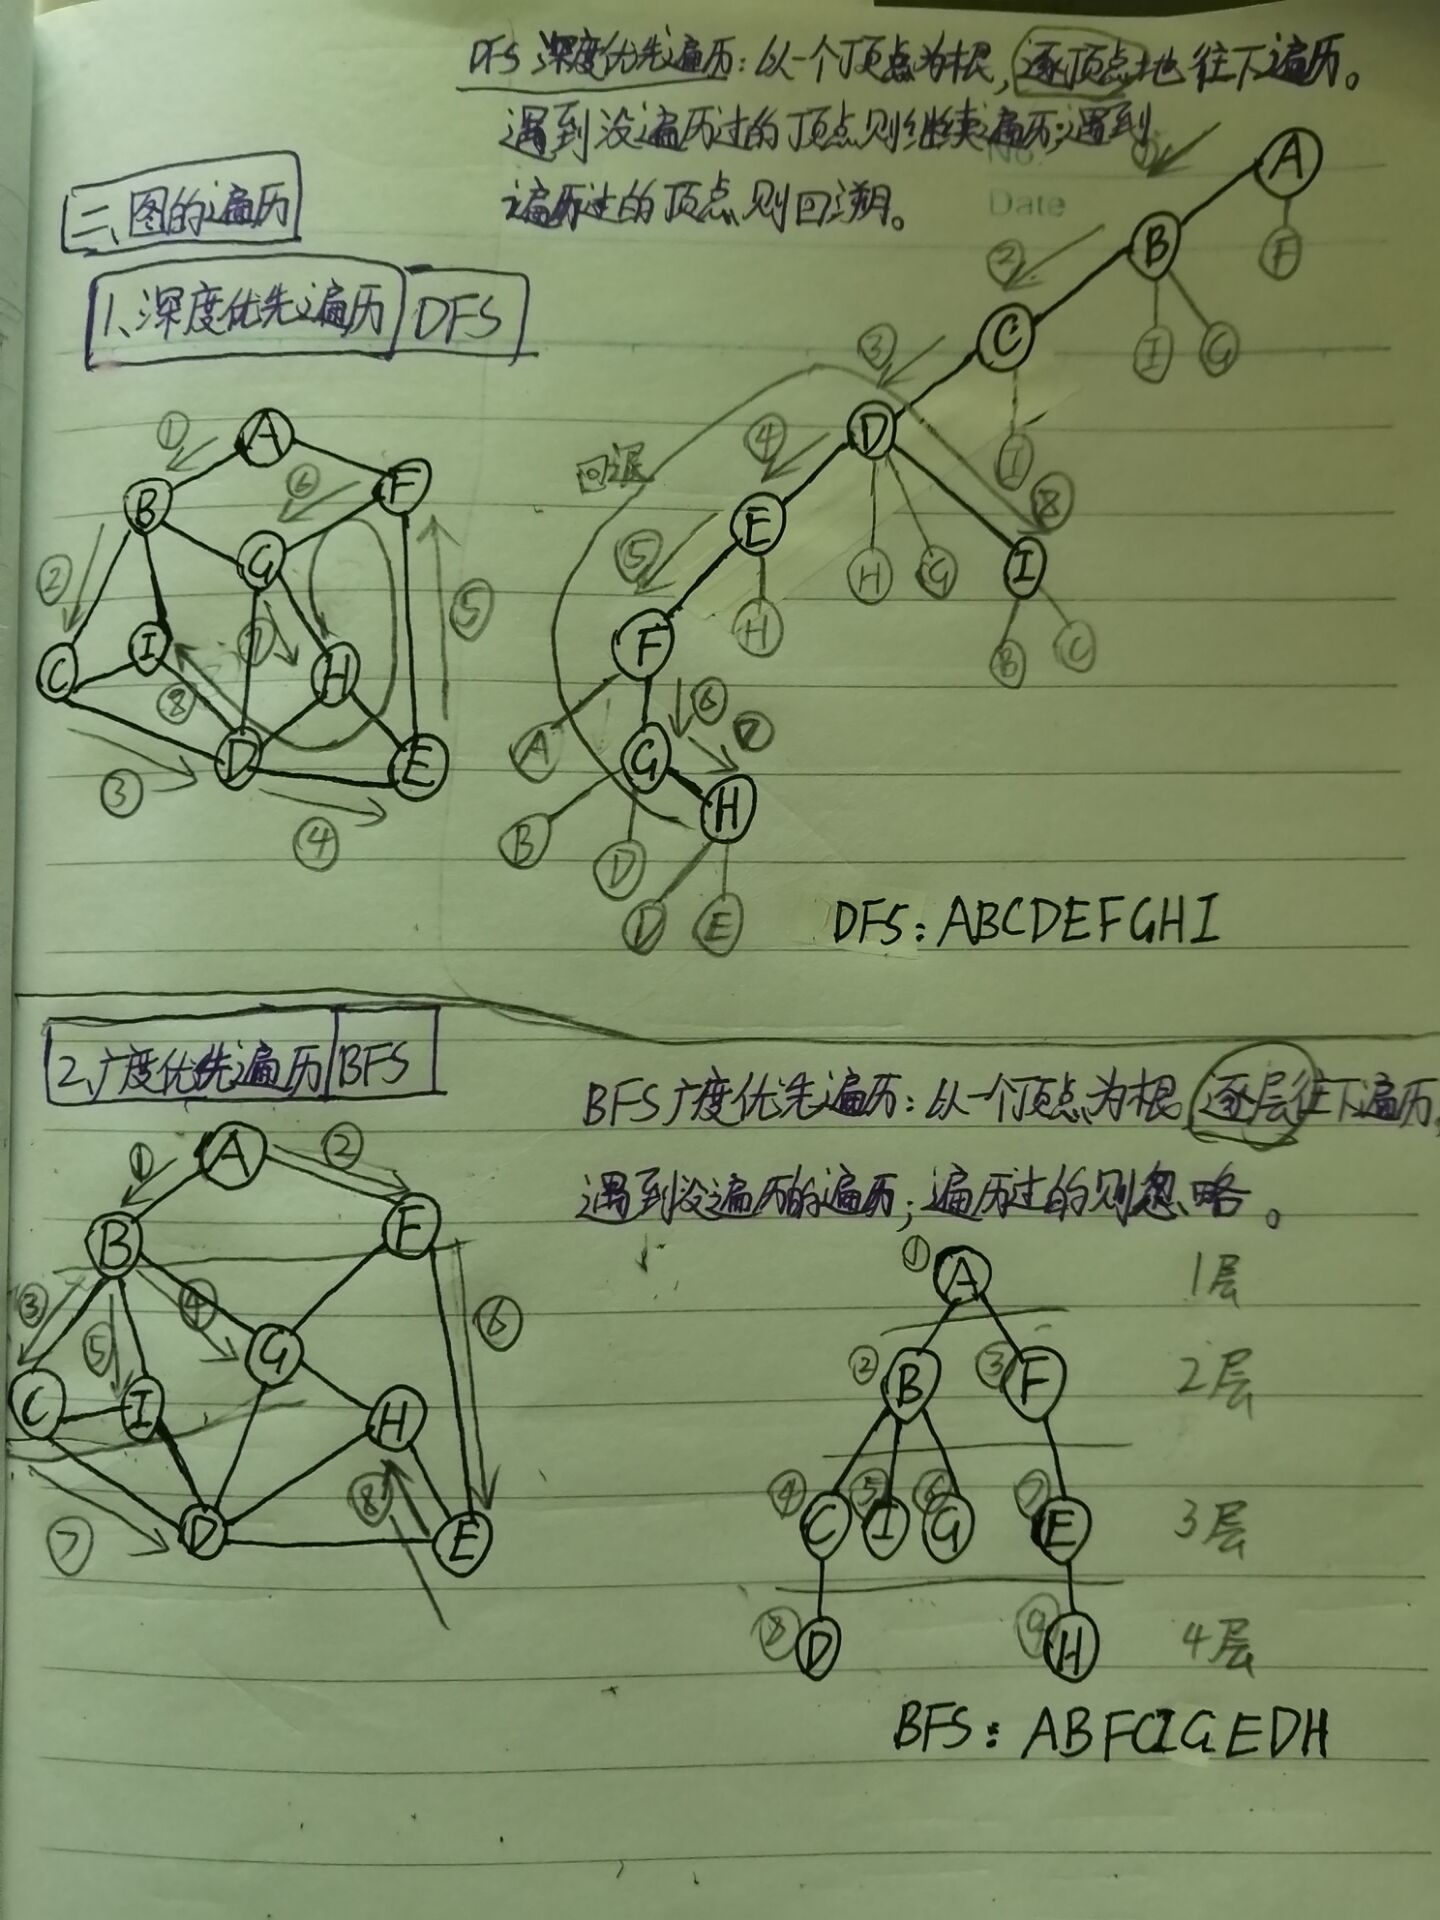 DFS 深度优先遍历：以一个顶点为根，逐顶点地往下遍历。
遇到没遍历过的顶点则继续遍历；遇到
遍历过的顶点则回溯。
No.
Date
二、图的遍历
1、深度优先遍历 DFS
A
① B ⑥ F
② G ⑤
C I ⑦ H
⑧ D E
③ ④
① A
② B F
③ C I G
④ D I
回溯 E H G I ⑧
⑤ F H B C
A G ⑥ ⑦
B D H
D E
DFS：ABCDEFGHI
2、广度优先遍历 BFS
BFS广度优先遍历：以一个顶点为根 逐层往下遍历，
遇到没遍历的遍历；遍历过的则忽略。
① A ②
B F
③ ⑤ ④ G ⑥
C I H
⑦ D ⑧ E
① A 1层
② B ③ F 2层
④ C ⑤ I ⑥ G ⑦ E 3层
⑧ D ⑨ H 4层
BFS：ABFCIGEDH